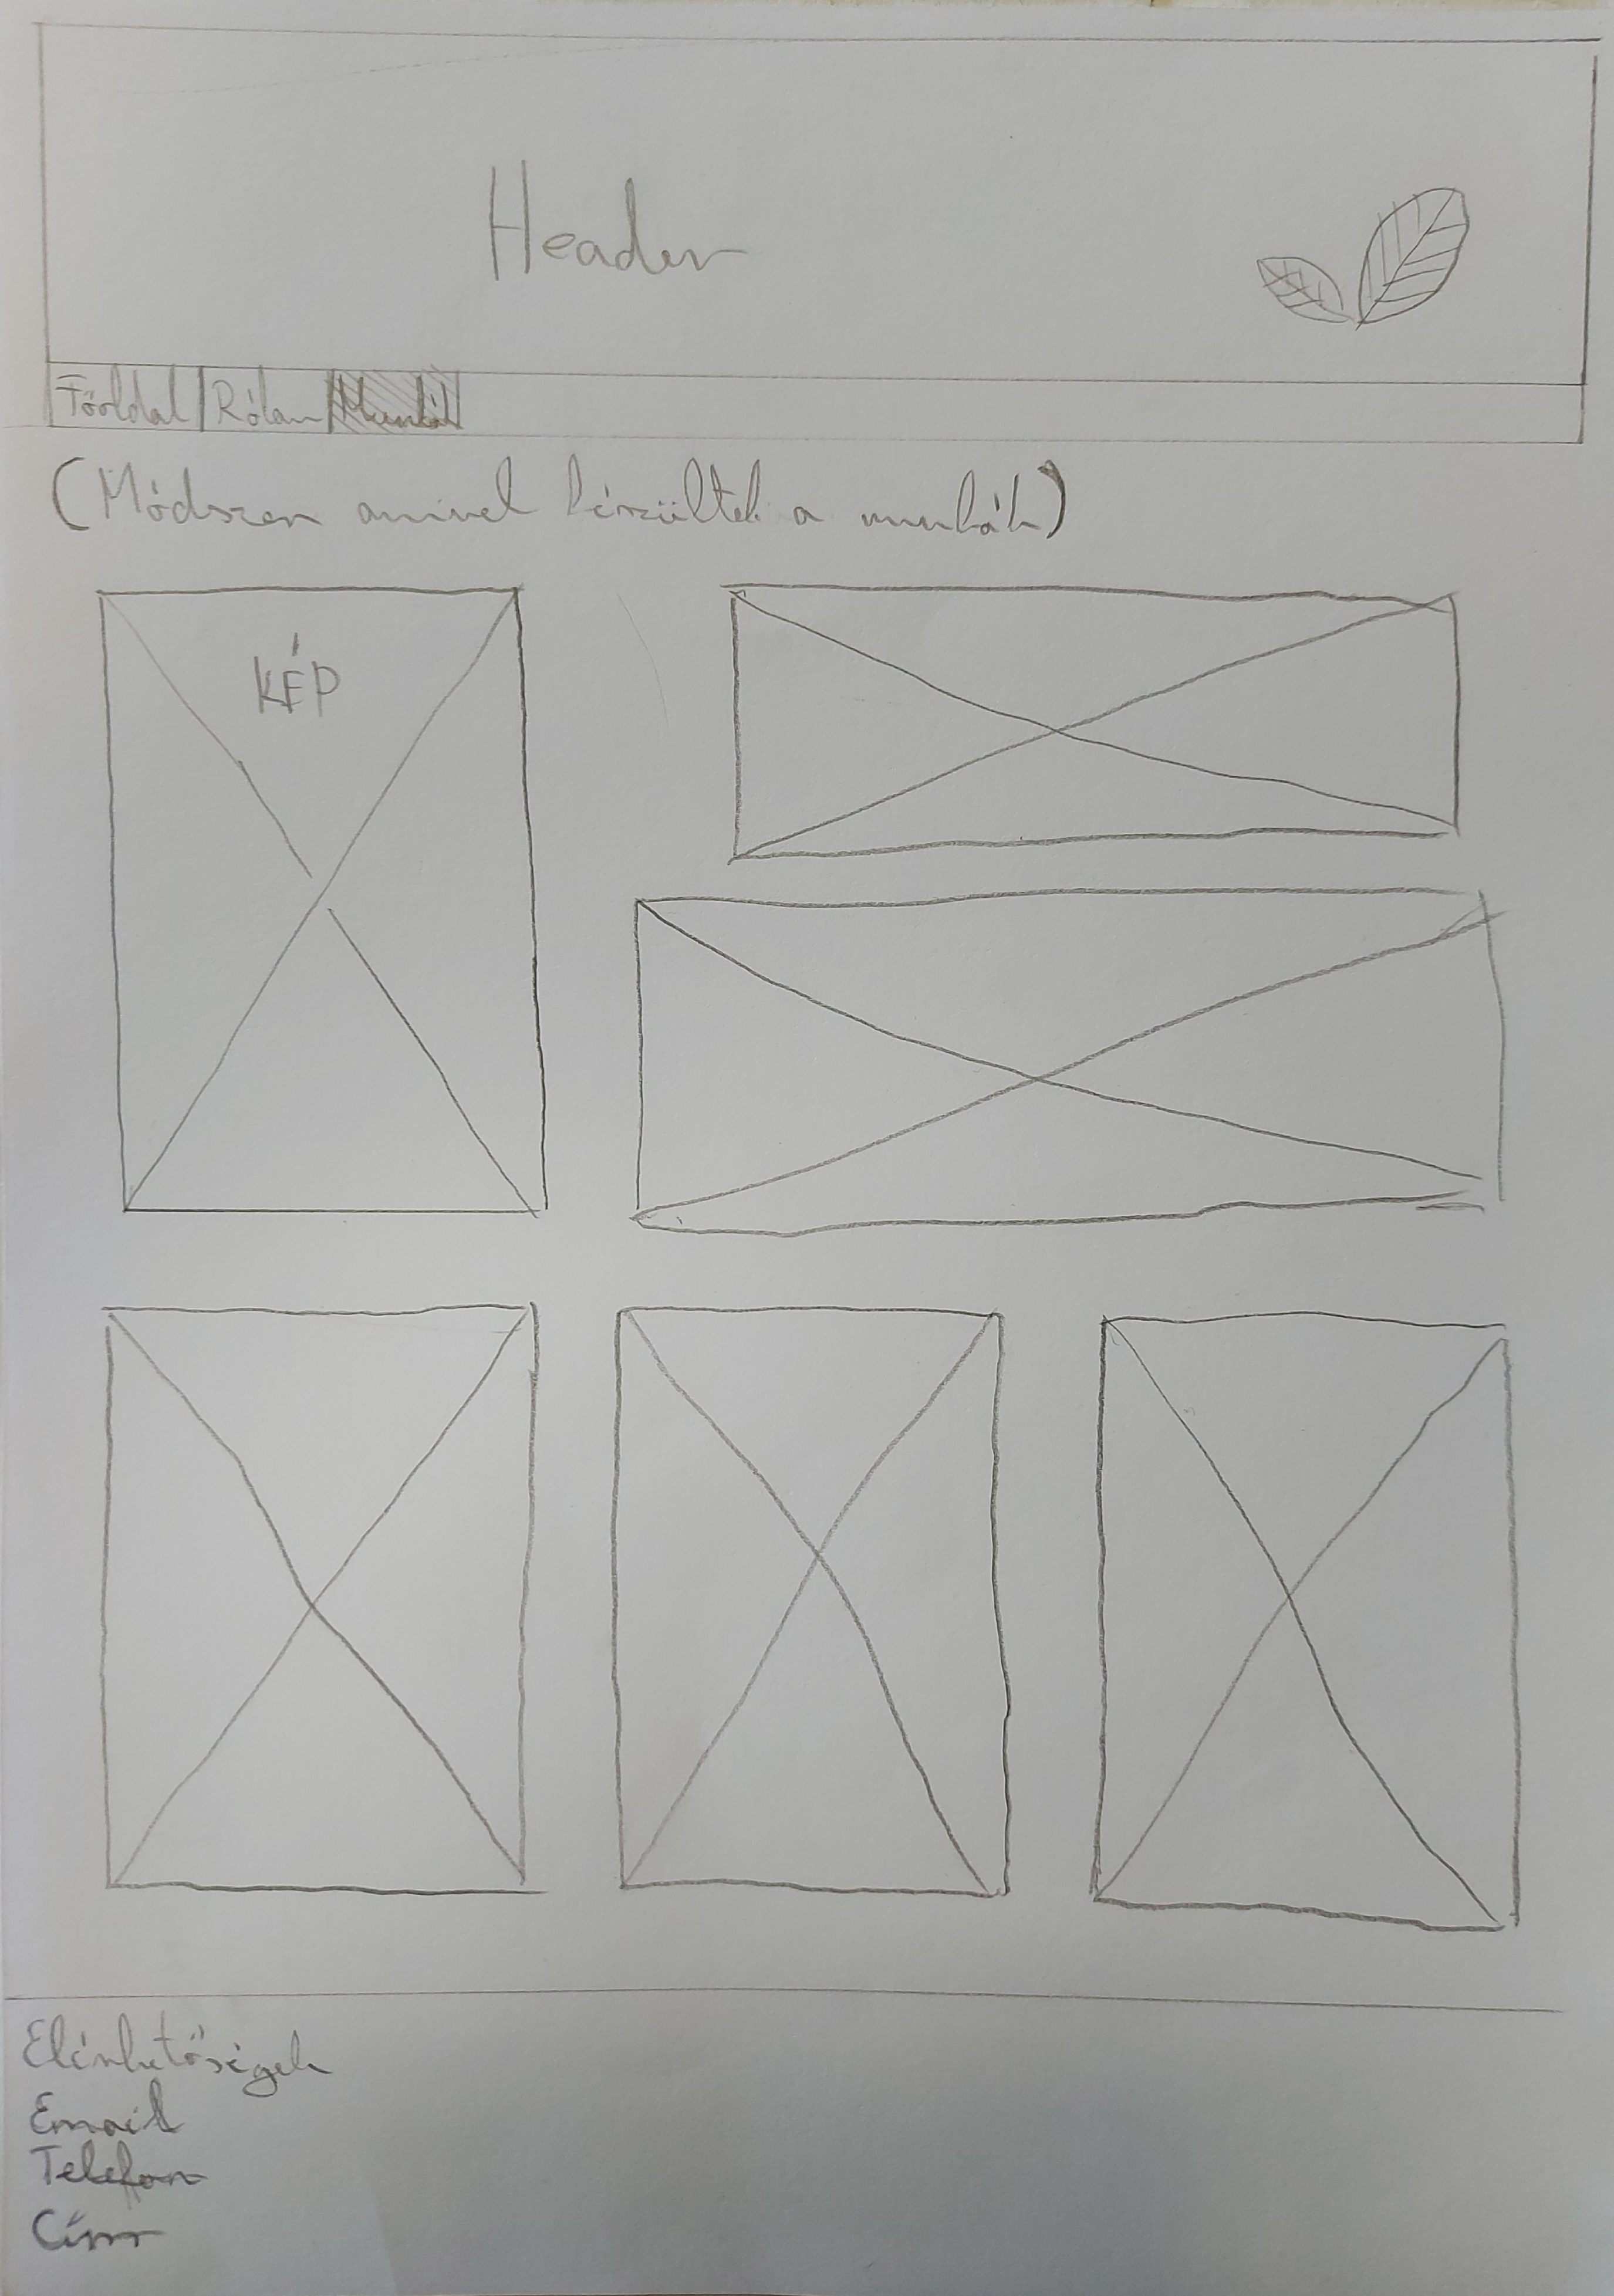 Header
Főoldal Rólam Munkái
(Módszer amivel készültek a munkák)
KÉP
Elérhetőségek
Email
Telefon
Cím